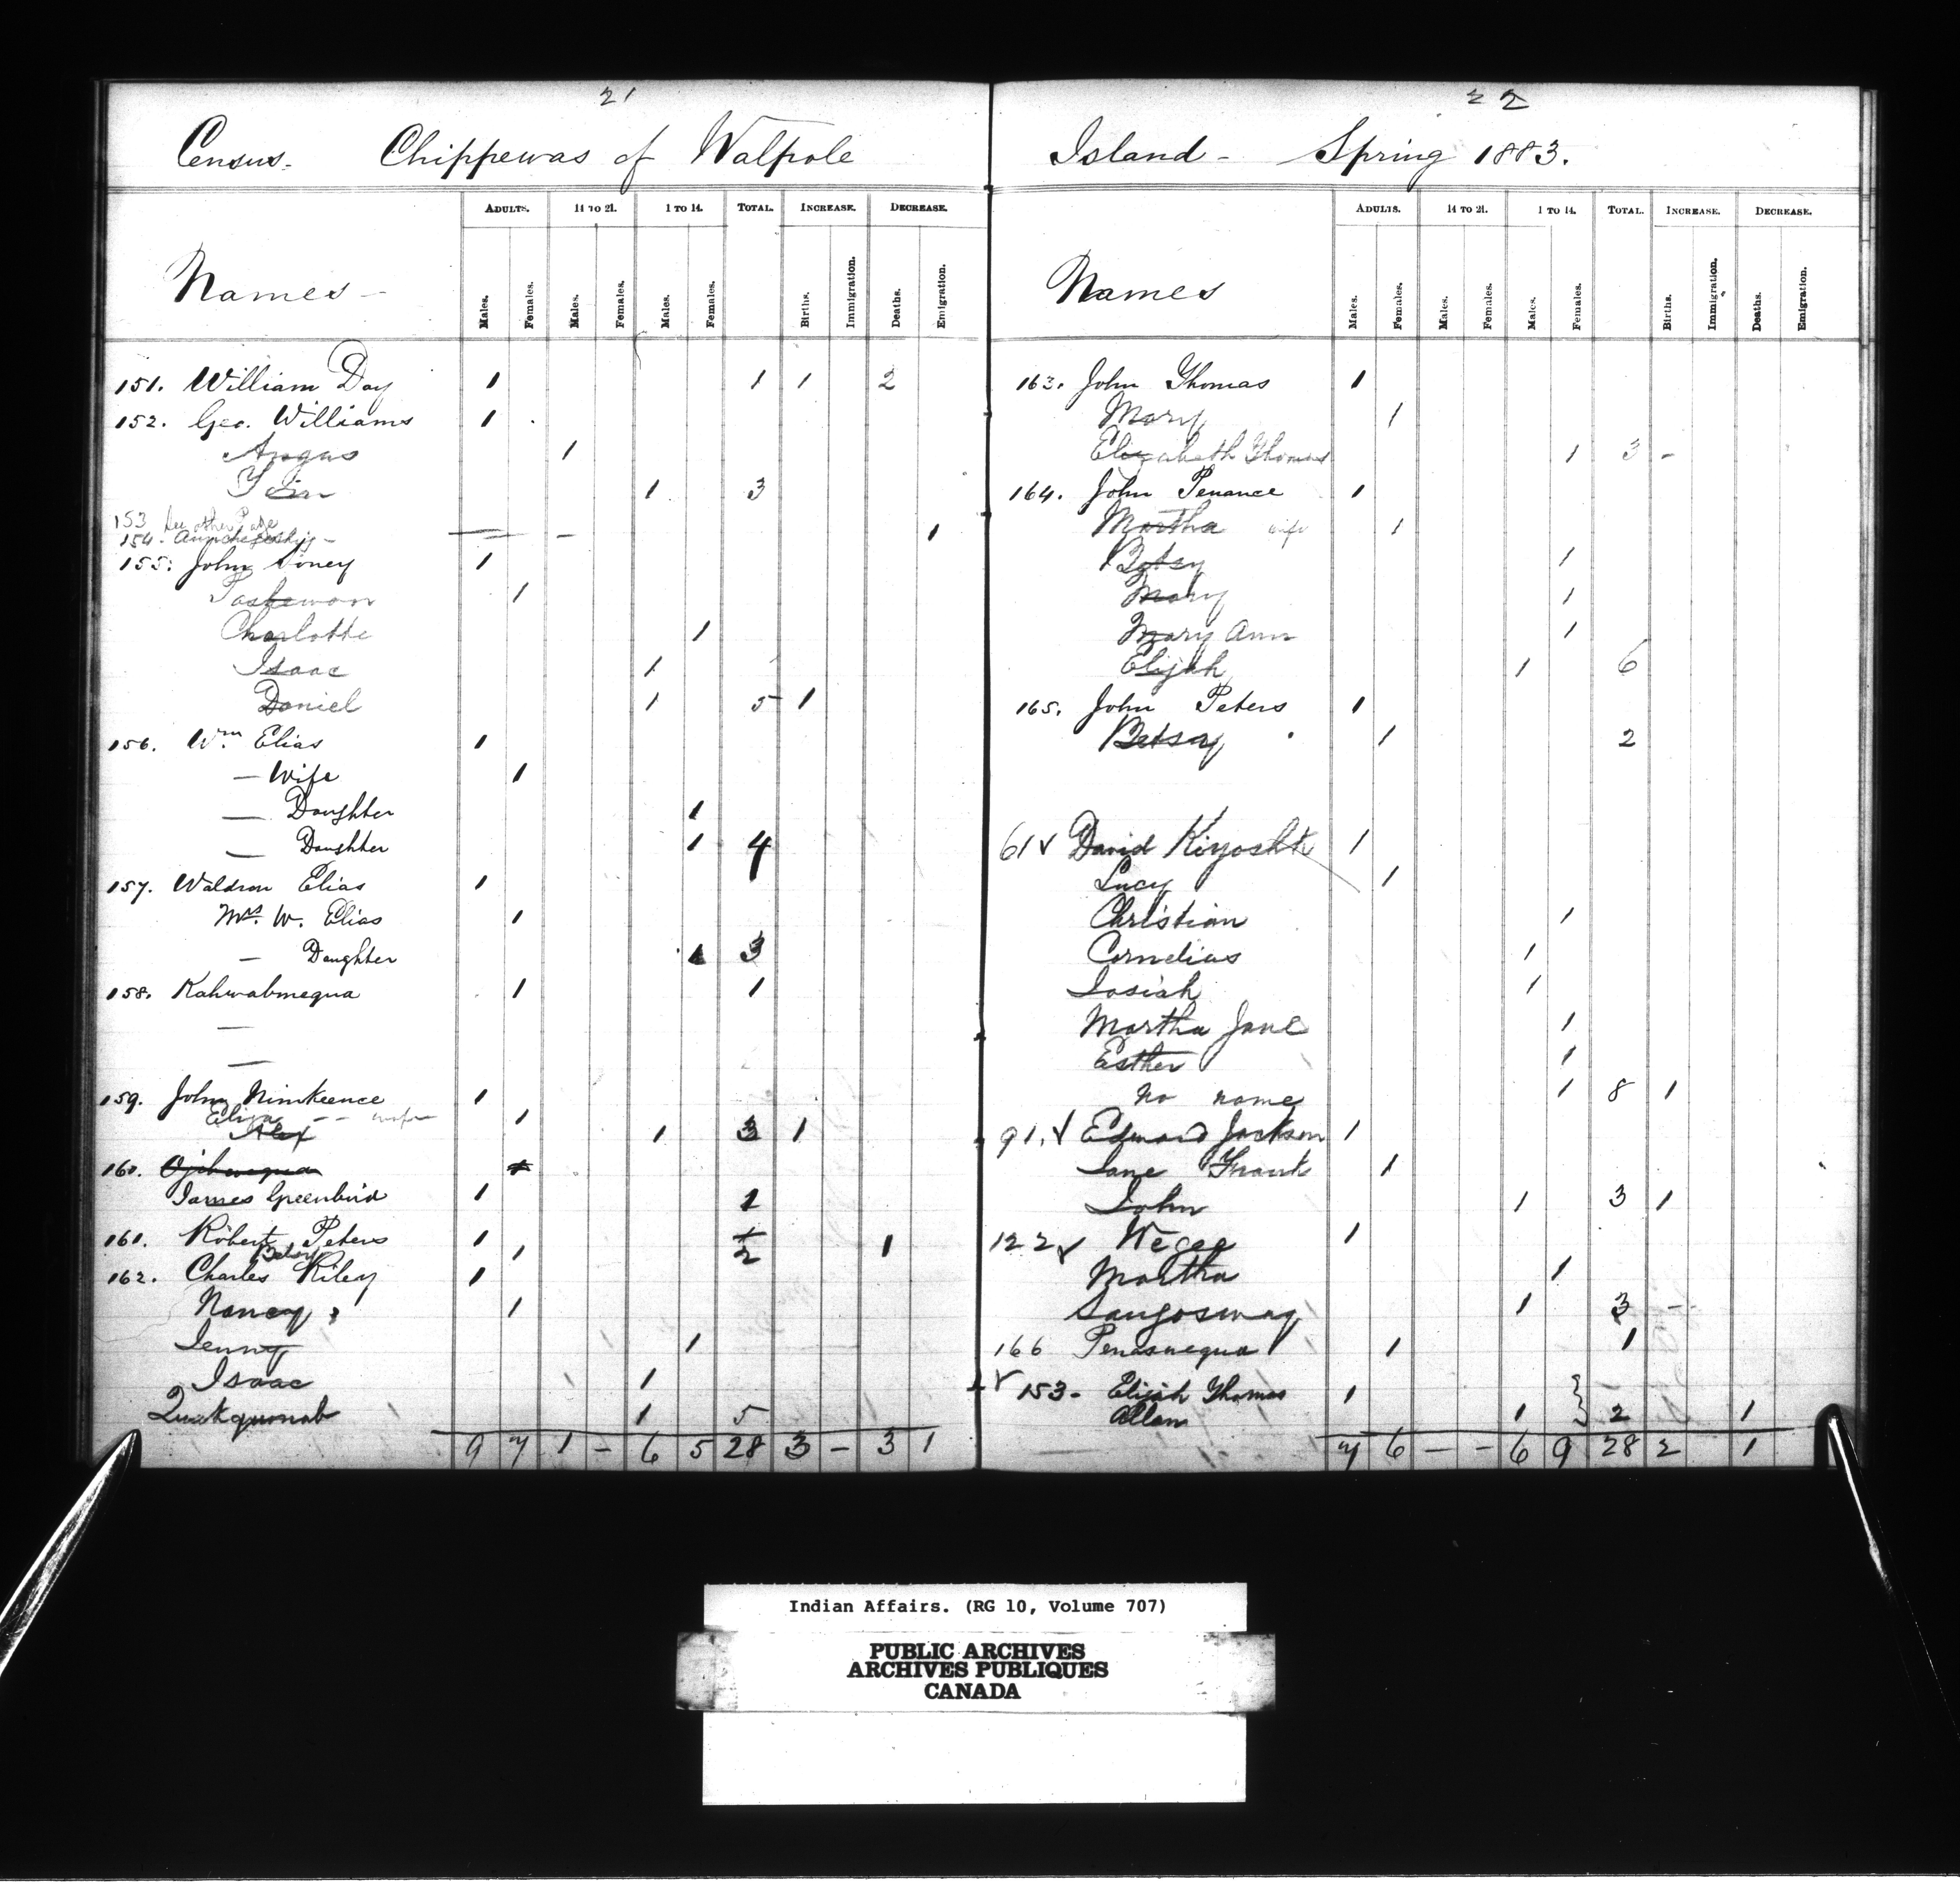 21
Census- Chippewas of Walpole
Names - ADULTS. 14 TO 21. 1 TO 14. TOTAL. INCREASE. DECREASE.
Males. Females. Males. Females. Males. Females. Births. Immigration. Deaths. Emigration.
151. William Day 1 1 1 2
152. Geo. Williams 1
Angus 1
1 3
153 See other Page
154. - 1
155. John Soney 1
1
Charlotte 1
Isaac 1
Daniel 1 5 1
156. Wm. Elias 1
— Wife 1
— Daughter 1
— Daughter 1 4
157. Waldron Elias 1
Mrs. W. Elias 1
— Daughter 1 3
158. Kahwabmequa 1 1
—
—
159. John Nimkeence 1
Eliza -- wife 1
Alex 1 3 1
160. Ojibwaqua 1
James Greenbird 1 1
161. Robert Peters 1 1 1
Betsy 1 2
162. Charles Riley 1
Nancy 1
Jenny 1
Isaac 1
Quakquonab 1 5
9 7 1 - 6 5 28 3 - 3 1
22
Island - Spring 1883.
Names ADULTS. 14 TO 21. 1 TO 14. TOTAL. INCREASE. DECREASE.
Males. Females. Males. Females. Males. Females. Births. Immigration. Deaths. Emigration.
163. John Thomas 1
Mary 1
Elizabeth Thomas 1 3 -
164. John Penance 1
Martha wife 1
Betsy 1
Mary 1
Mary Ann 1
Elijah 1 6
165. John Peters 1
Betsay 1 2
61 ✓ David Kiyoshk 1
Lucy 1
Christian 1
Cornelius 1
Josiah 1
Martha Jane 1
Esther 1
no name 1 8 1
91. ✓ Edward Jackson 1
Jane Grant 1
John 1 3 1
122 ✓ Wegee 1
Martha 1
Saugosway 1 3 -
166 Penasnequa 1 1
✓ 153- Elijah Thomas 1
Allen 1 2 1
7 6 - - 6 9 28 2 1
Indian Affairs. (RG 10, Volume 707)
PUBLIC ARCHIVES
ARCHIVES PUBLIQUES
CANADA